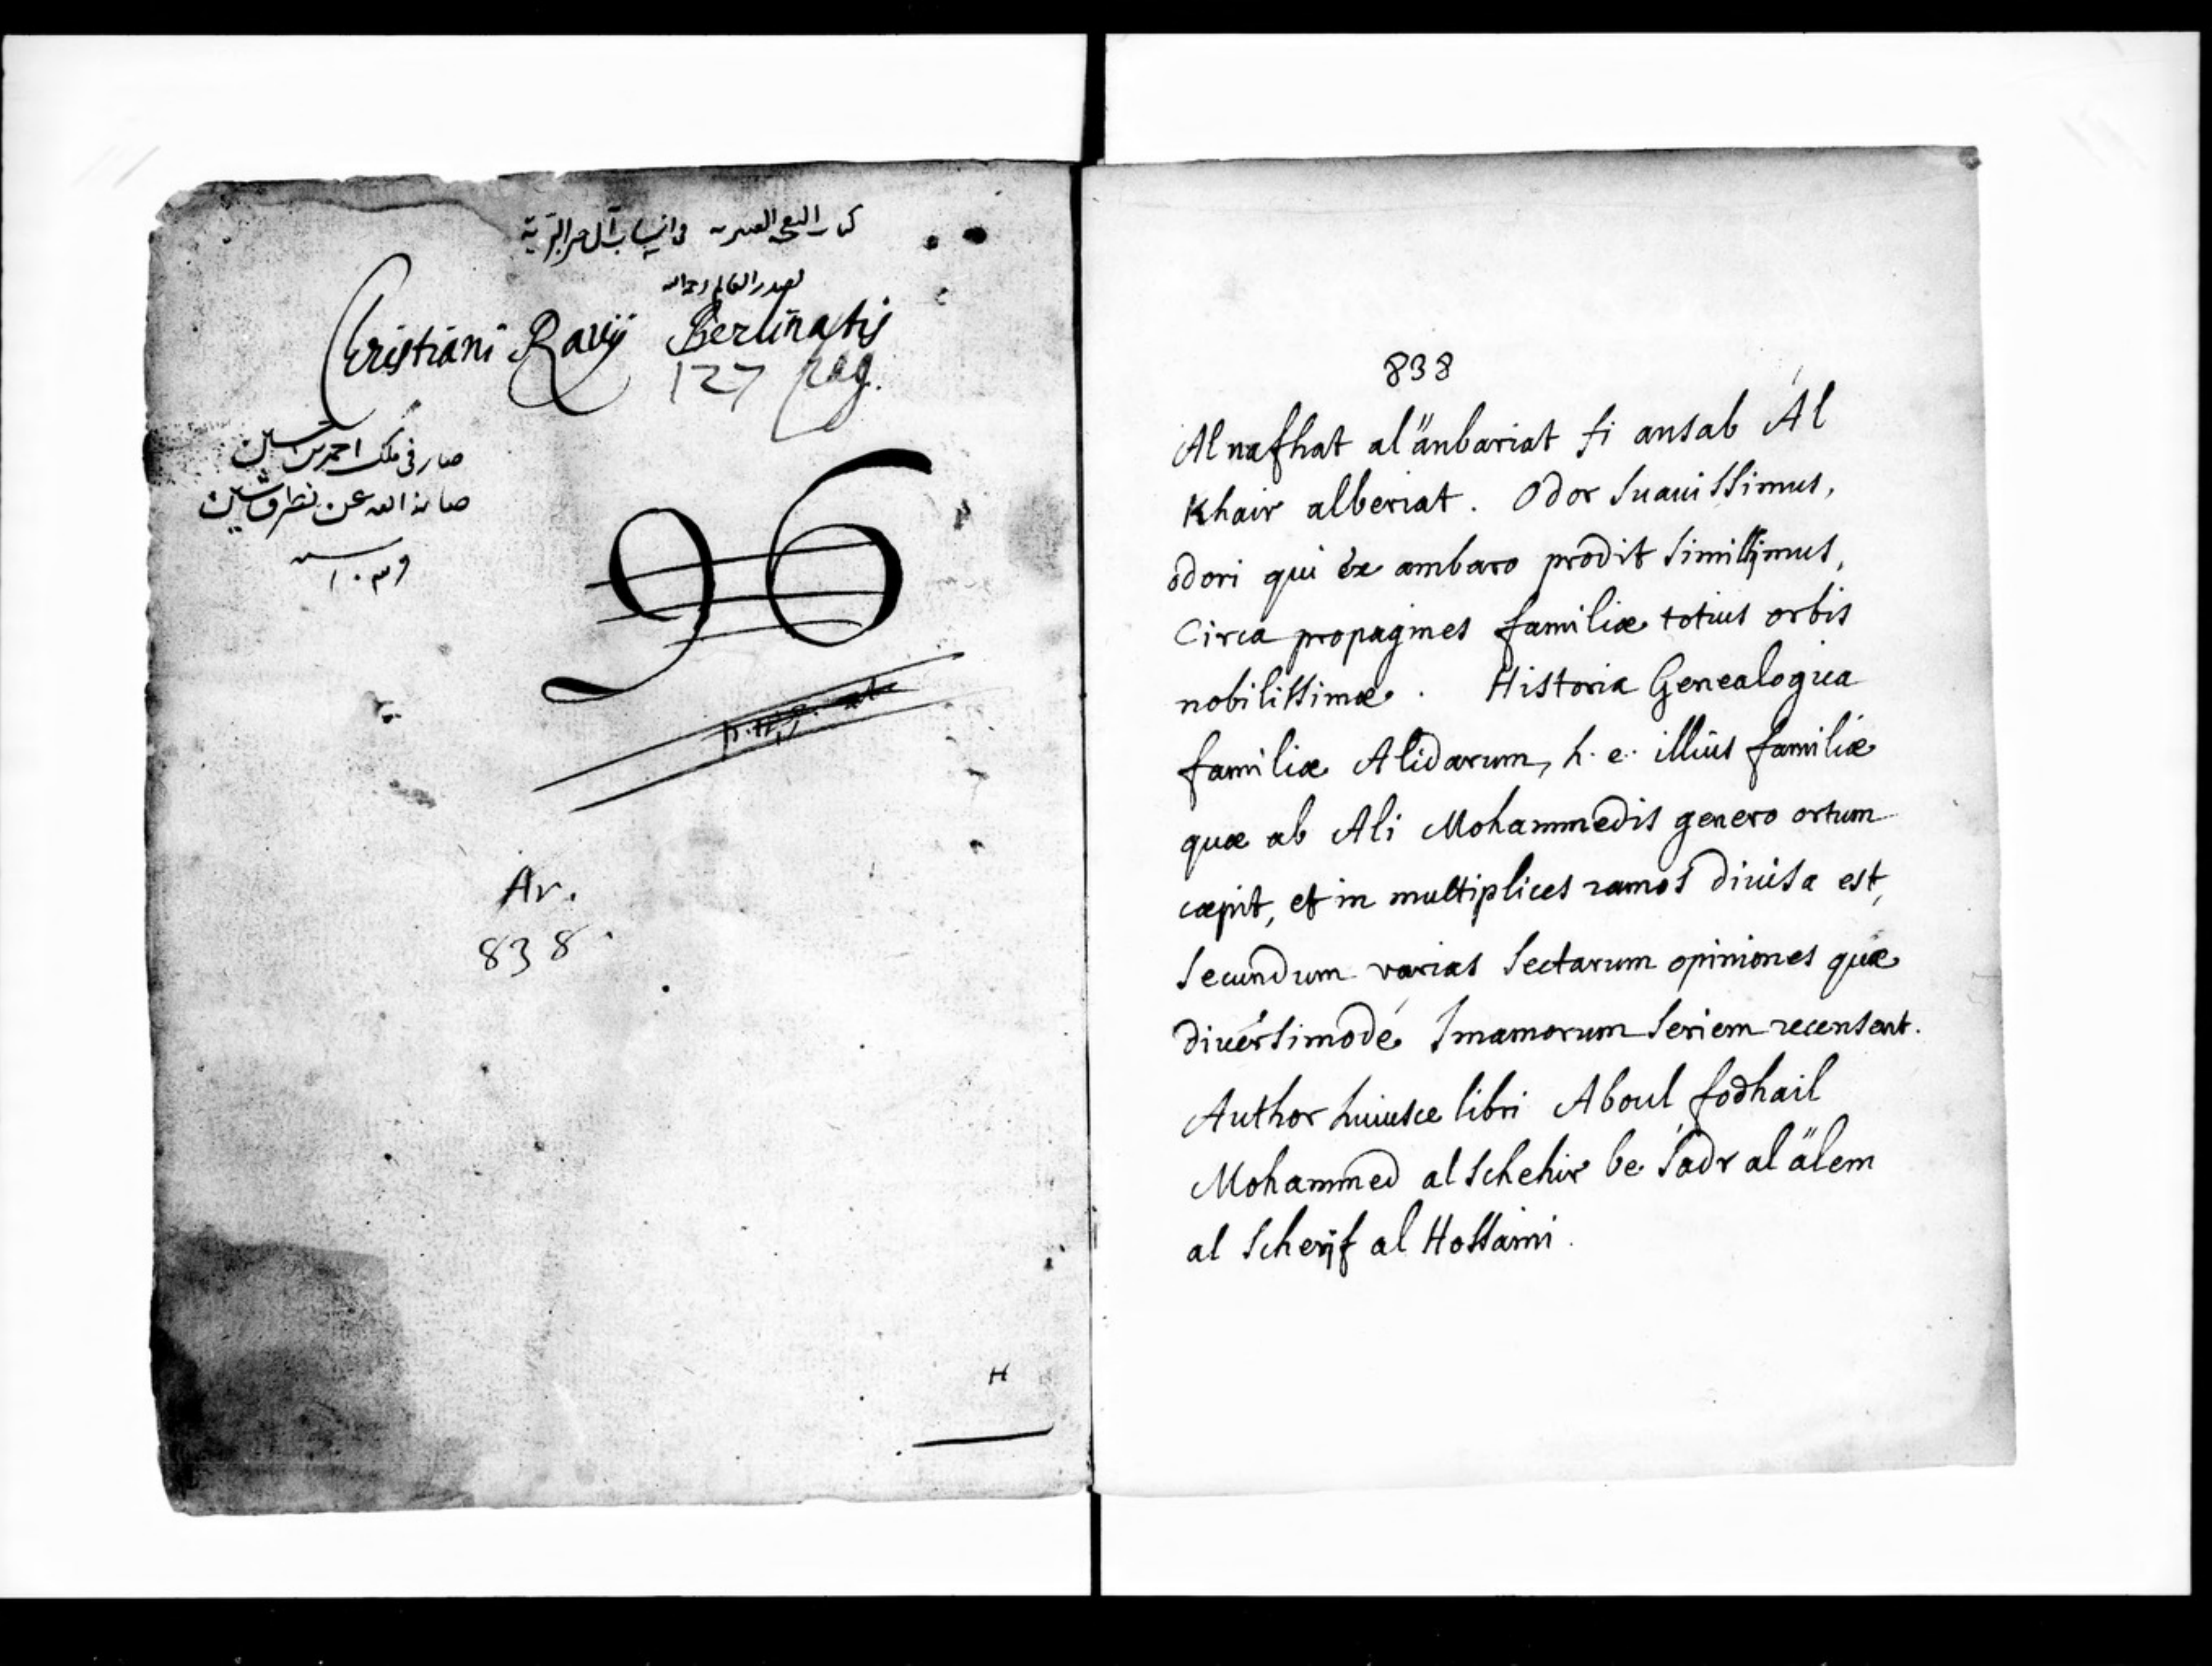 كتاب النفحة العنبرية في انساب آل خير البرية
لصدر العالم رحمه الله
Christiani Ravij Berlinatis
127 pag.
صار في ملك احمد بن
صانه الله عن
96
Ar.
838
H
838
Al nafhat al änbariat fi ansab Ál
Khair alberiat. Odor suauissimus,
odori qui ex ambaro prodit simillimus,
Circa propagines familiæ totius orbis
nobilissimæ. Historia Genealogica
familiæ Alidarum, h. e. illius familiæ
quæ ab Ali Mohammedis genero ortum
cœpit, et in multiplices ramos diuisa est,
secundum varias sectarum opiniones quæ
diuersimodé Imamorum seriem recensent.
Author huiusce libri Aboul fodhail
Mohammed al schehir be sadr al älem
al scherif al Hossaini.